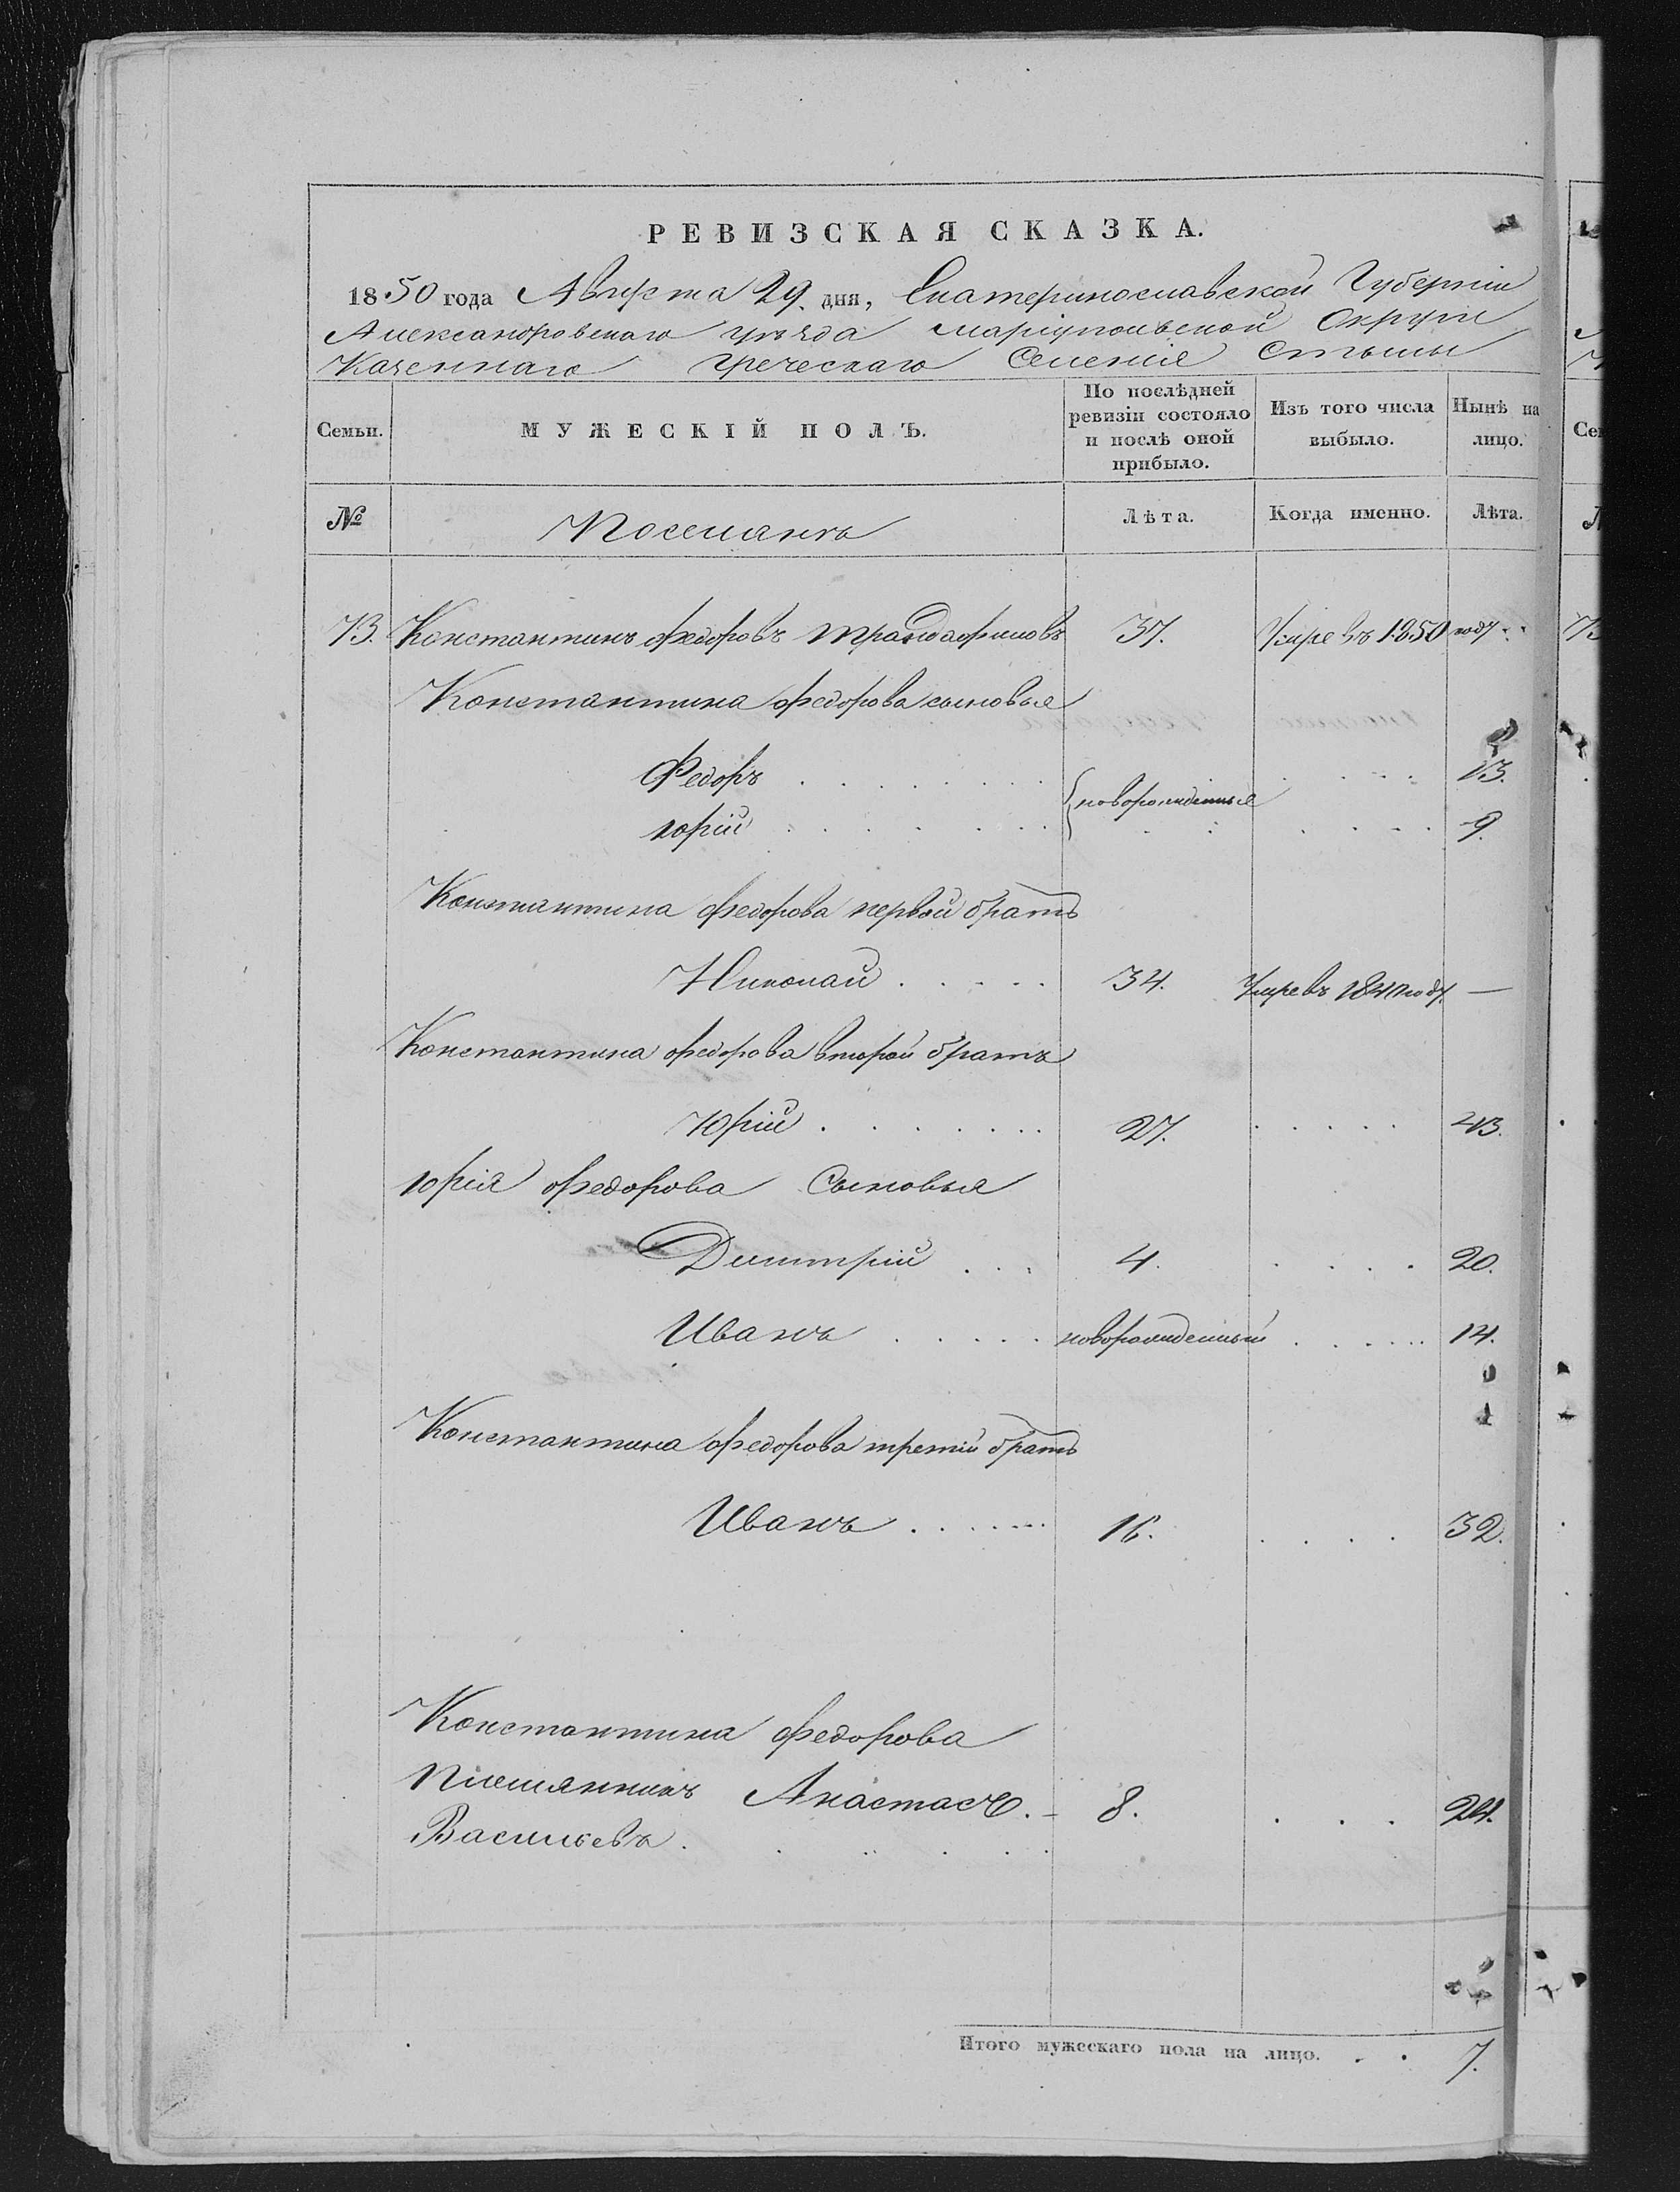 РЕВИЗСКАЯ СКАЗКА.
1850 года Августа 29 дня, Екатеринославской Губерніи
Александровскаго уѣзда Маріупольской Округи
Казеннаго Греческаго Селенія Стылы
Семьи. МУЖЕСКІЙ ПОЛЪ. По послѣдней ревизіи состояло и послѣ оной прибыло. Изъ того числа выбыло. Нынѣ на лицо.
№ Поселянъ Лѣта. Когда именно. Лѣта.
73. Константинъ Федоровъ Трандафиловъ 37. Умре въ 1850 году
Константина Федорова сыновья
Федоръ 13.
новорожденные
Юрій 9.
Константина Федорова первой братъ
Николай 34. Умре въ году —
Константина Федорова второй братъ
Юрій 27. 43.
Юрія Федорова Сыновья
Димитрій 4. 20.
Иванъ новорожденный 14.
Константина Федорова третій братъ
Иванъ 16. 32.
Константина Федорова
Племянникъ Анастасъ 8. 24.
Васильевъ
Итого мужескаго пола на лицо. 7.